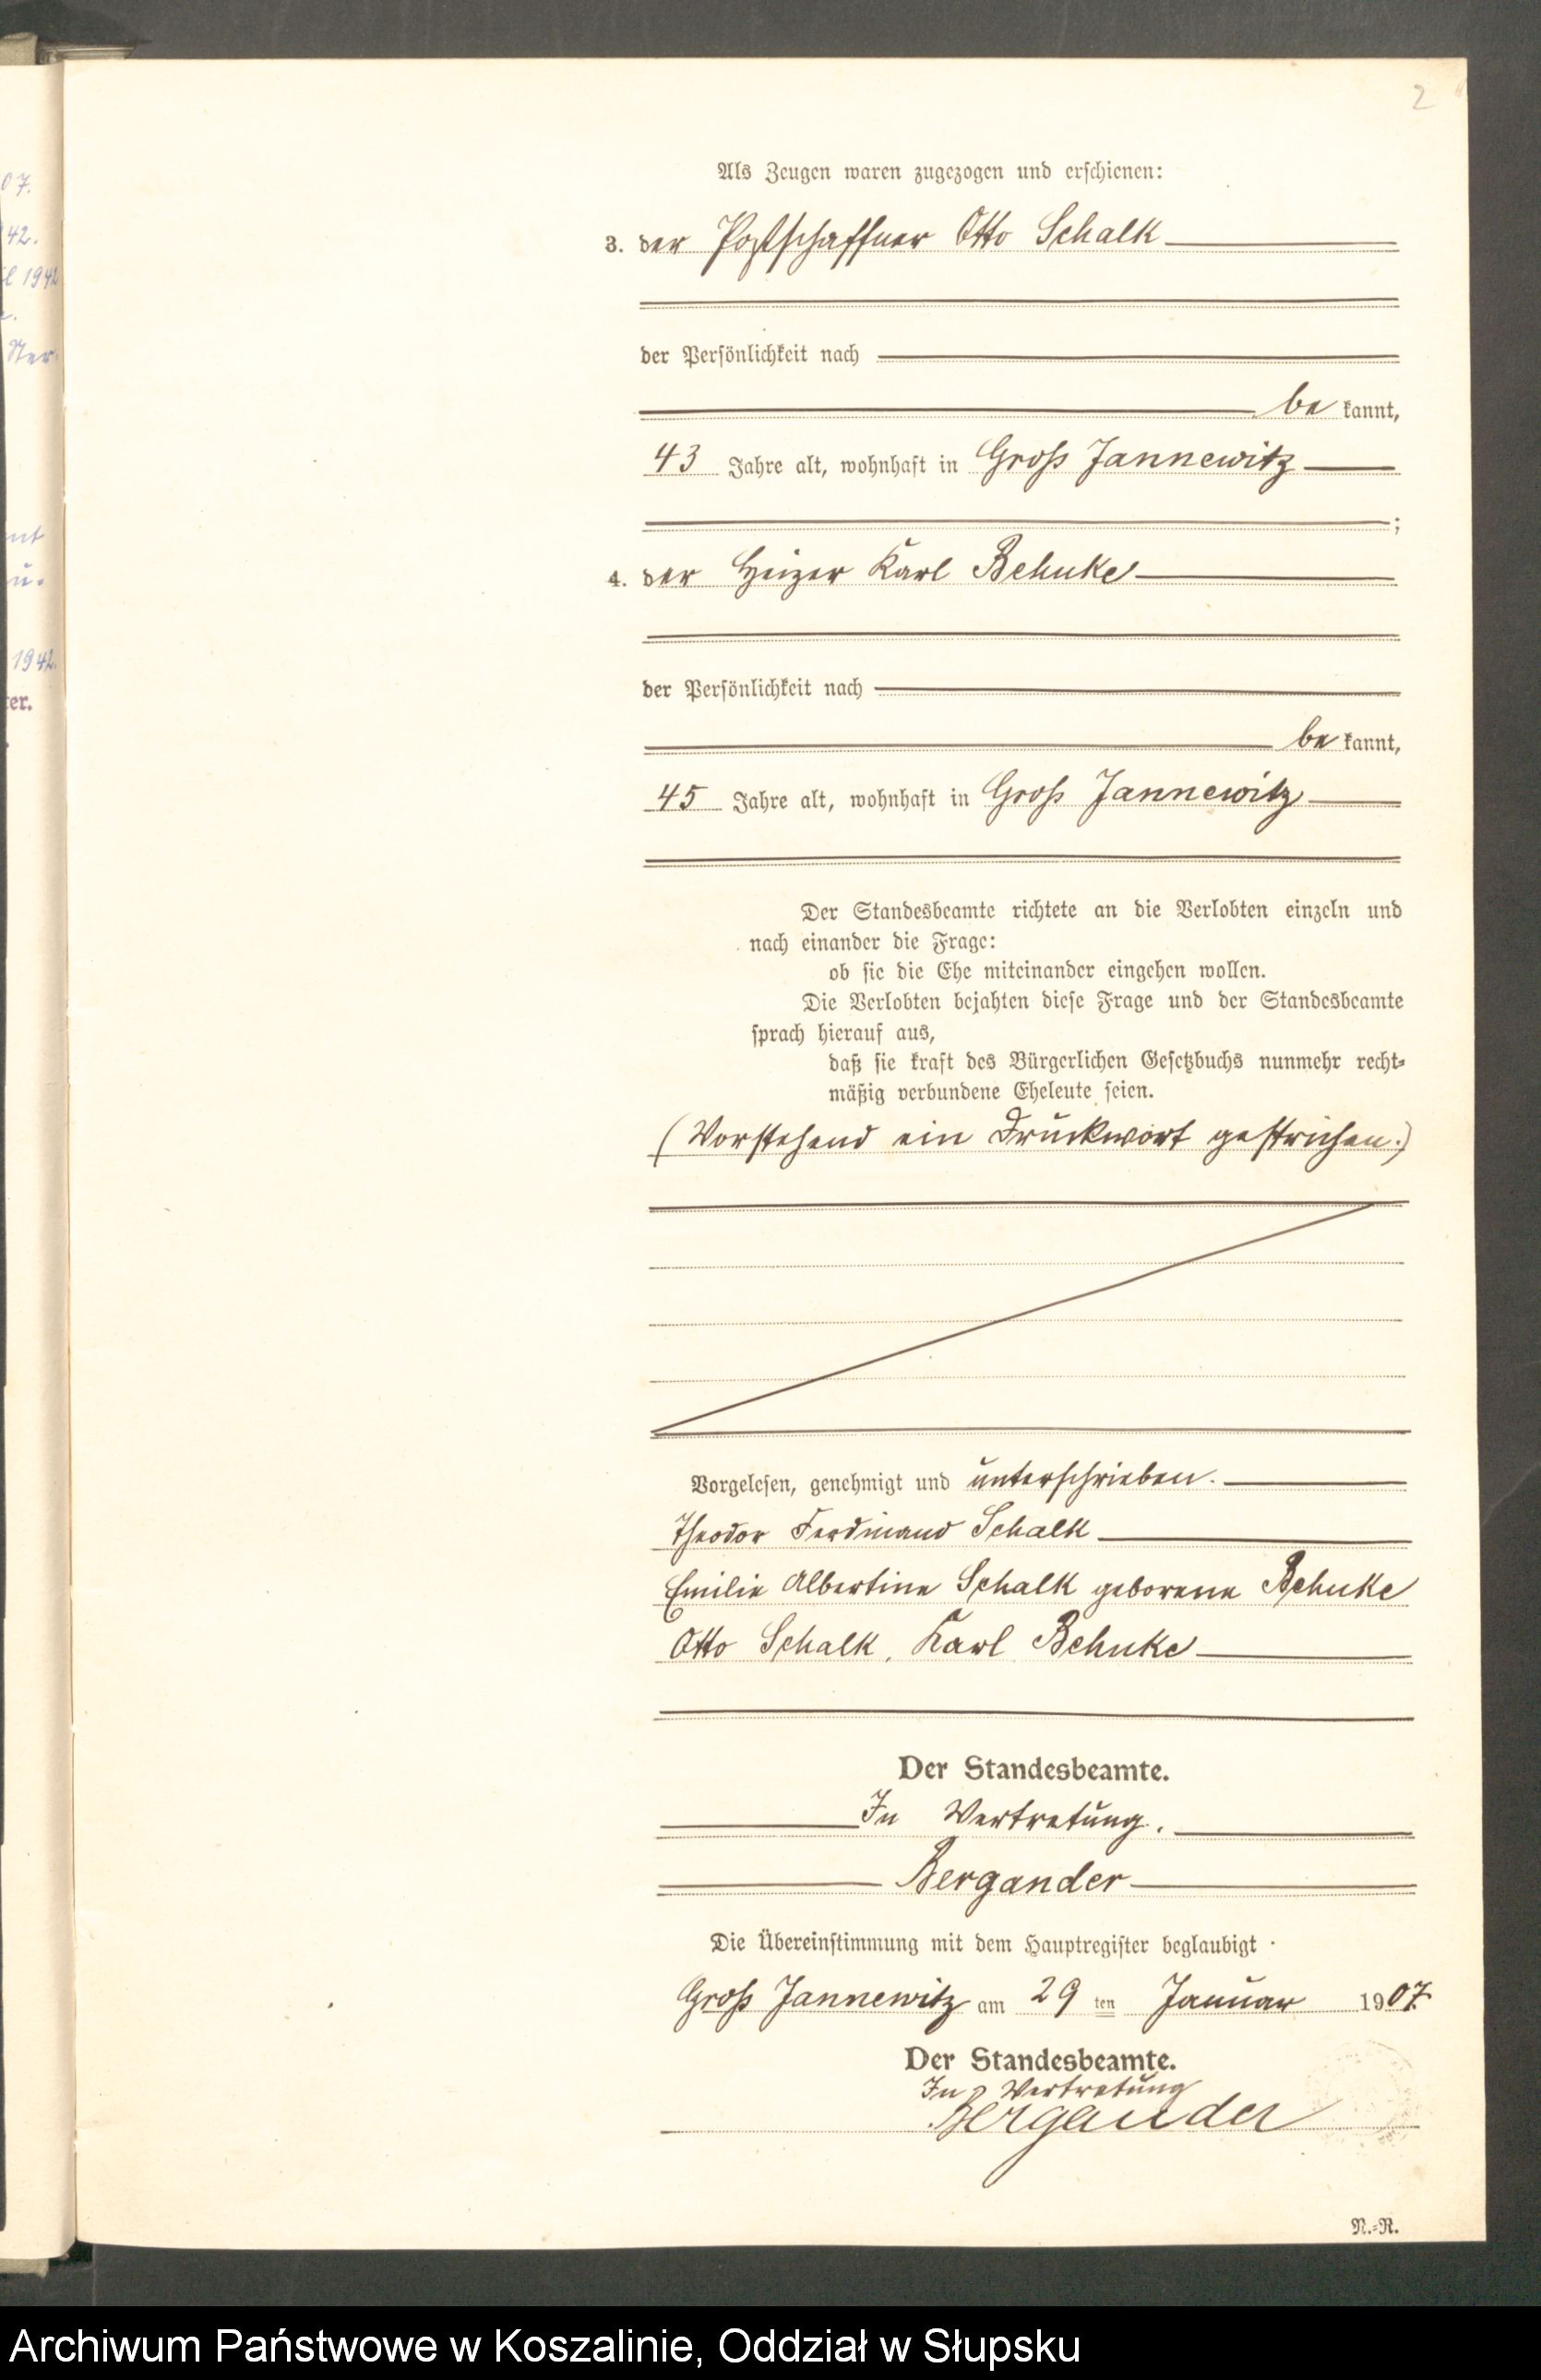 2
Als Zeugen waren zugezogen und erschienen:
3. der Postschaffner Otto Schalk
der Persönlichkeit nach
be kannt,
43 Jahre alt, wohnhaft in Groß Jannewitz
;
4. der Heizer Karl Behnke
der Persönlichkeit nach
be kannt,
45 Jahre alt, wohnhaft in Groß Jannewitz
Der Standesbeamte richtete an die Verlobten einzeln und
nach einander die Frage:
ob sie die Ehe miteinander eingehen wollen.
Die Verlobten bejahten diese Frage und der Standesbeamte
sprach hierauf aus,
daß sie kraft des Bürgerlichen Gesetzbuchs nunmehr recht-
mäßig verbundene Eheleute seien.
(Vorstehend ein Druckwort gestrichen.)
Vorgelesen, genehmigt und unterschrieben.
Theodor Ferdinand Schalk
Emilie Albertine Schalk geborene Behnke
Otto Schalk, Karl Behnke
Der Standesbeamte.
In Vertretung.
Bergander
Die Übereinstimmung mit dem Hauptregister beglaubigt
Groß Jannewitz am 29 ten Januar 1907
Der Standesbeamte.
In Vertretung
Bergander
N.-R.
07.
42.
1942
1942.
Archiwum Państwowe w Koszalinie, Oddział w Słupsku